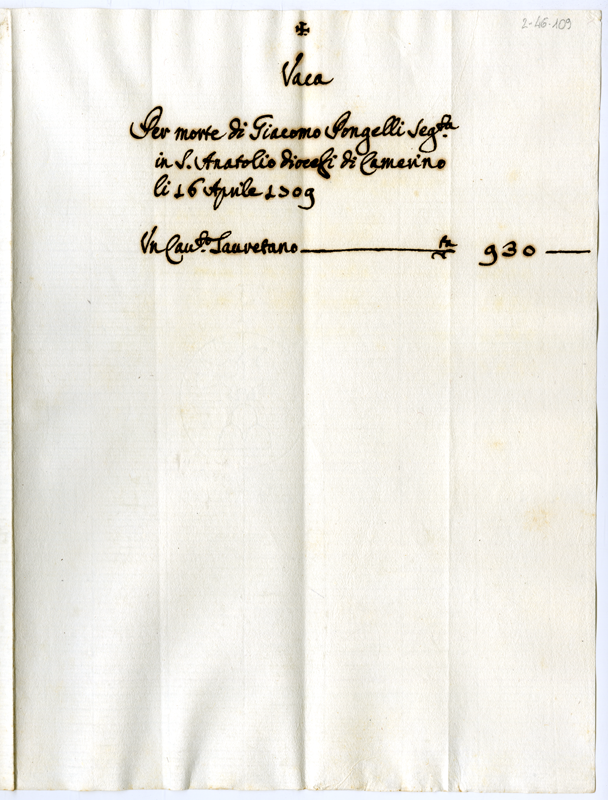 2-46-109
✠
Vaca
Per morte di Giacomo Pongelli seg.ta
in S. Anatolio diocesi di Camerino
li 16 Aprile 1309
Un Cau.to Lauretano 930